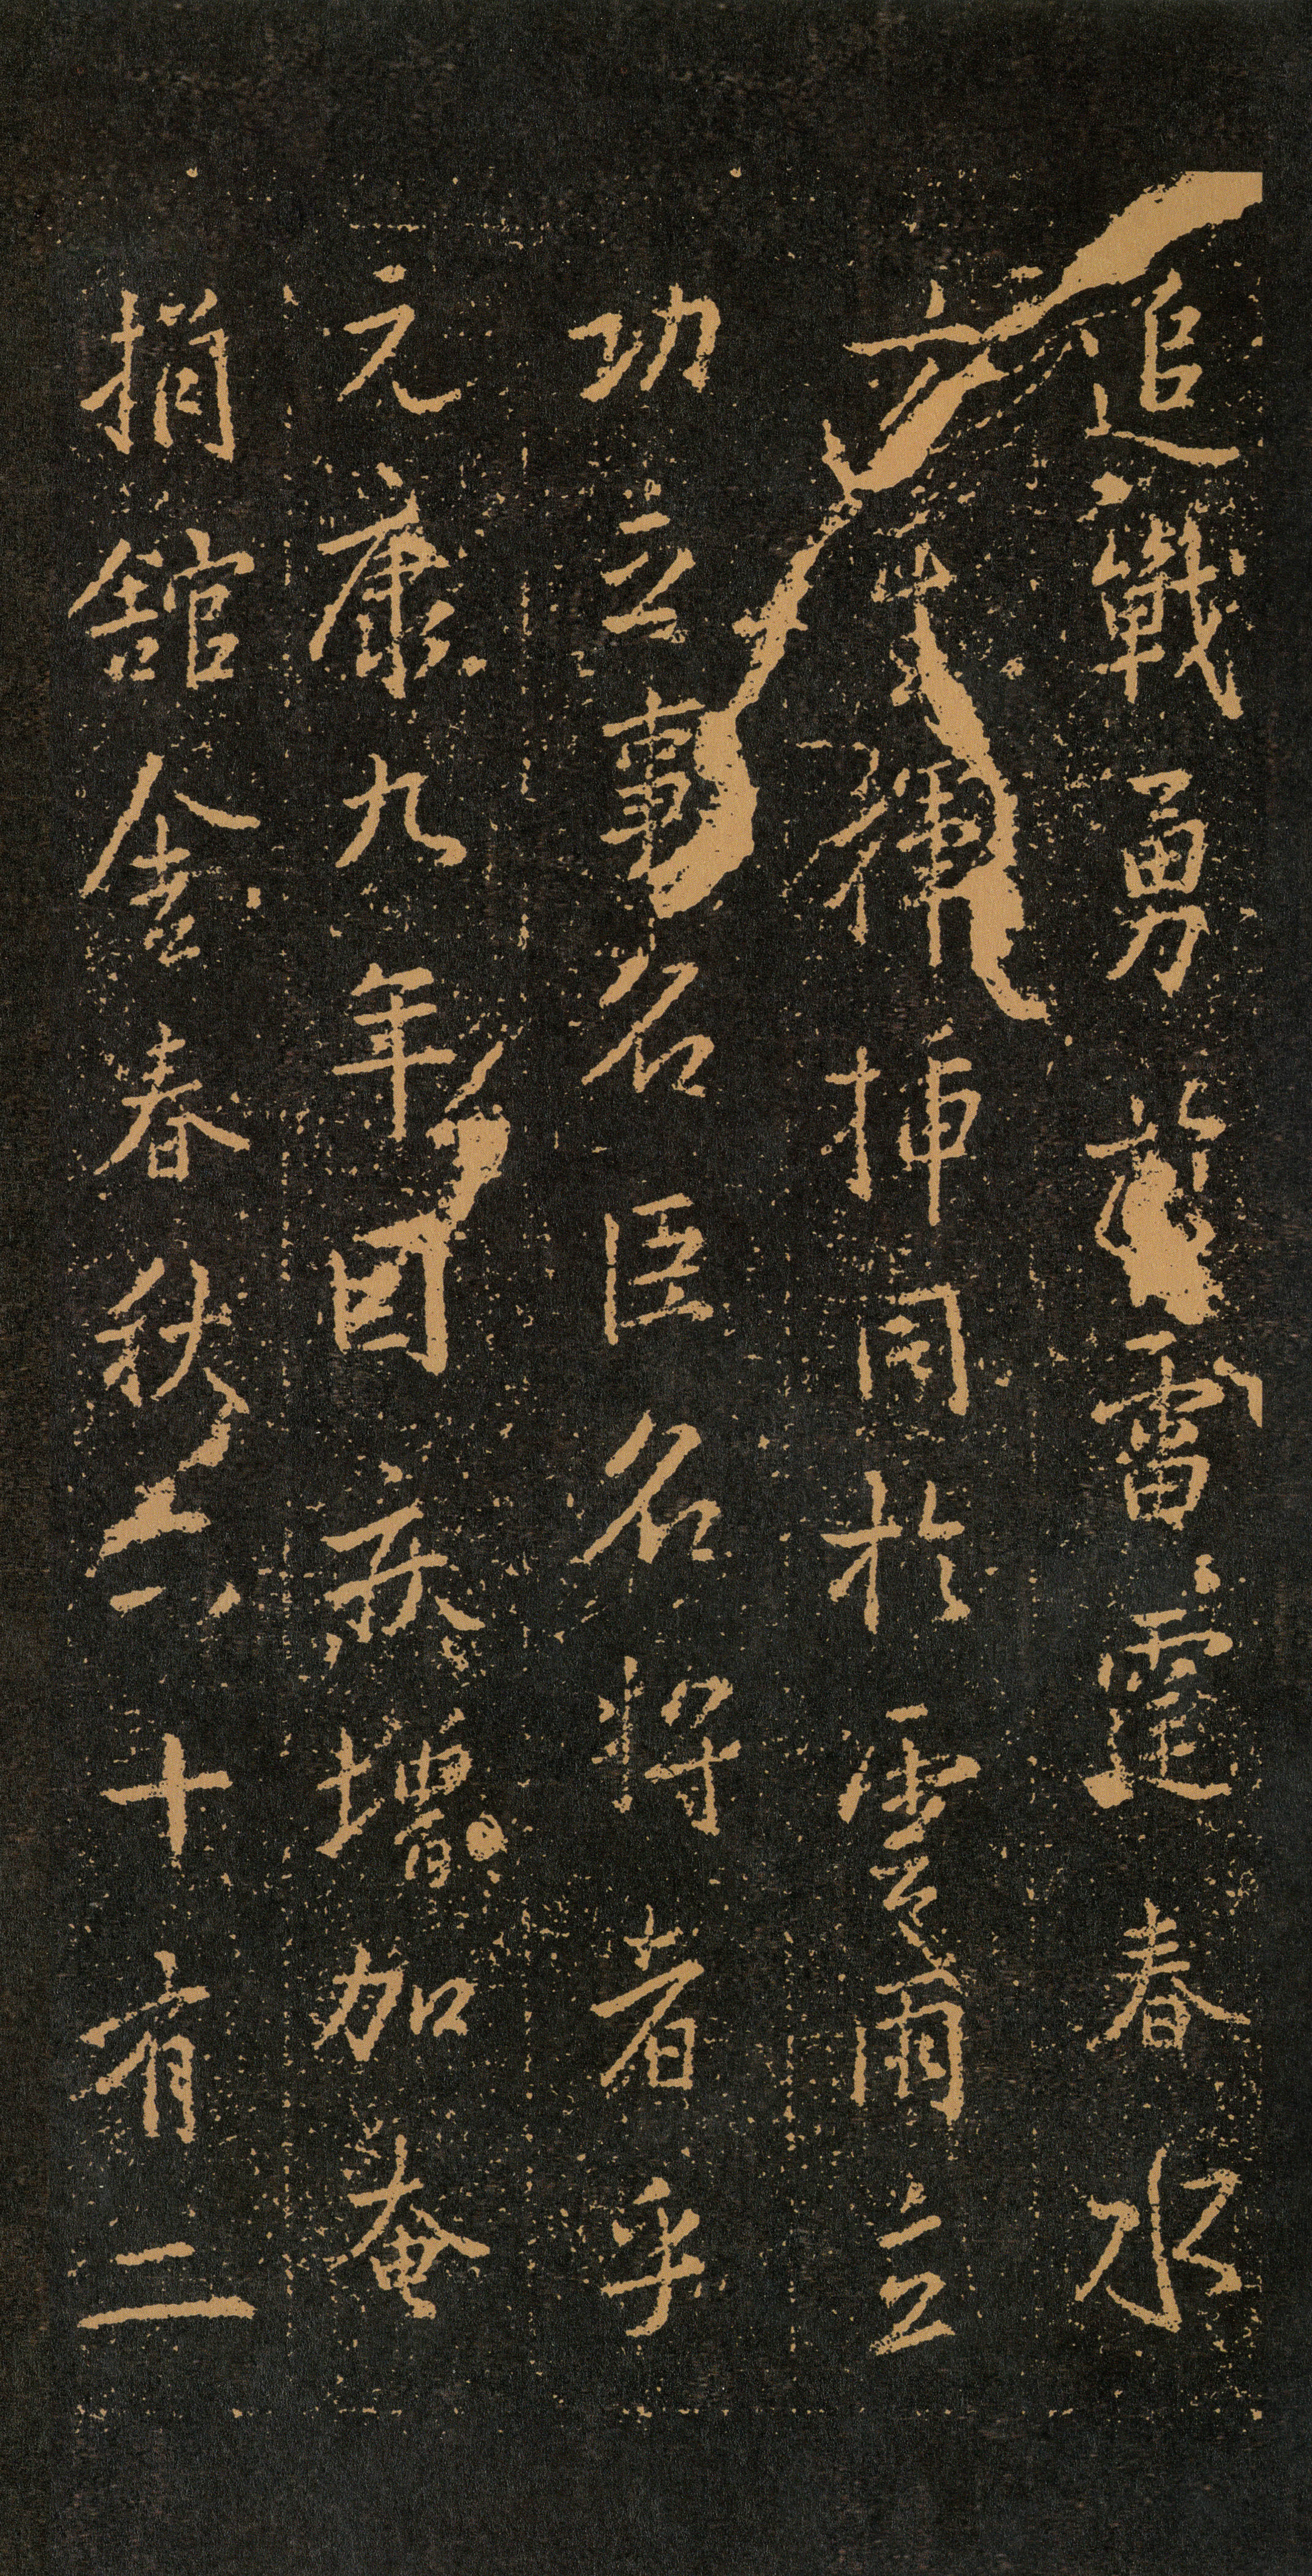 追戰勇於雷霆春水
方生揮插同於雲雨立
功立事名臣名將者乎
元康九年因疾增加奄
捐舘舍春秋六十有二